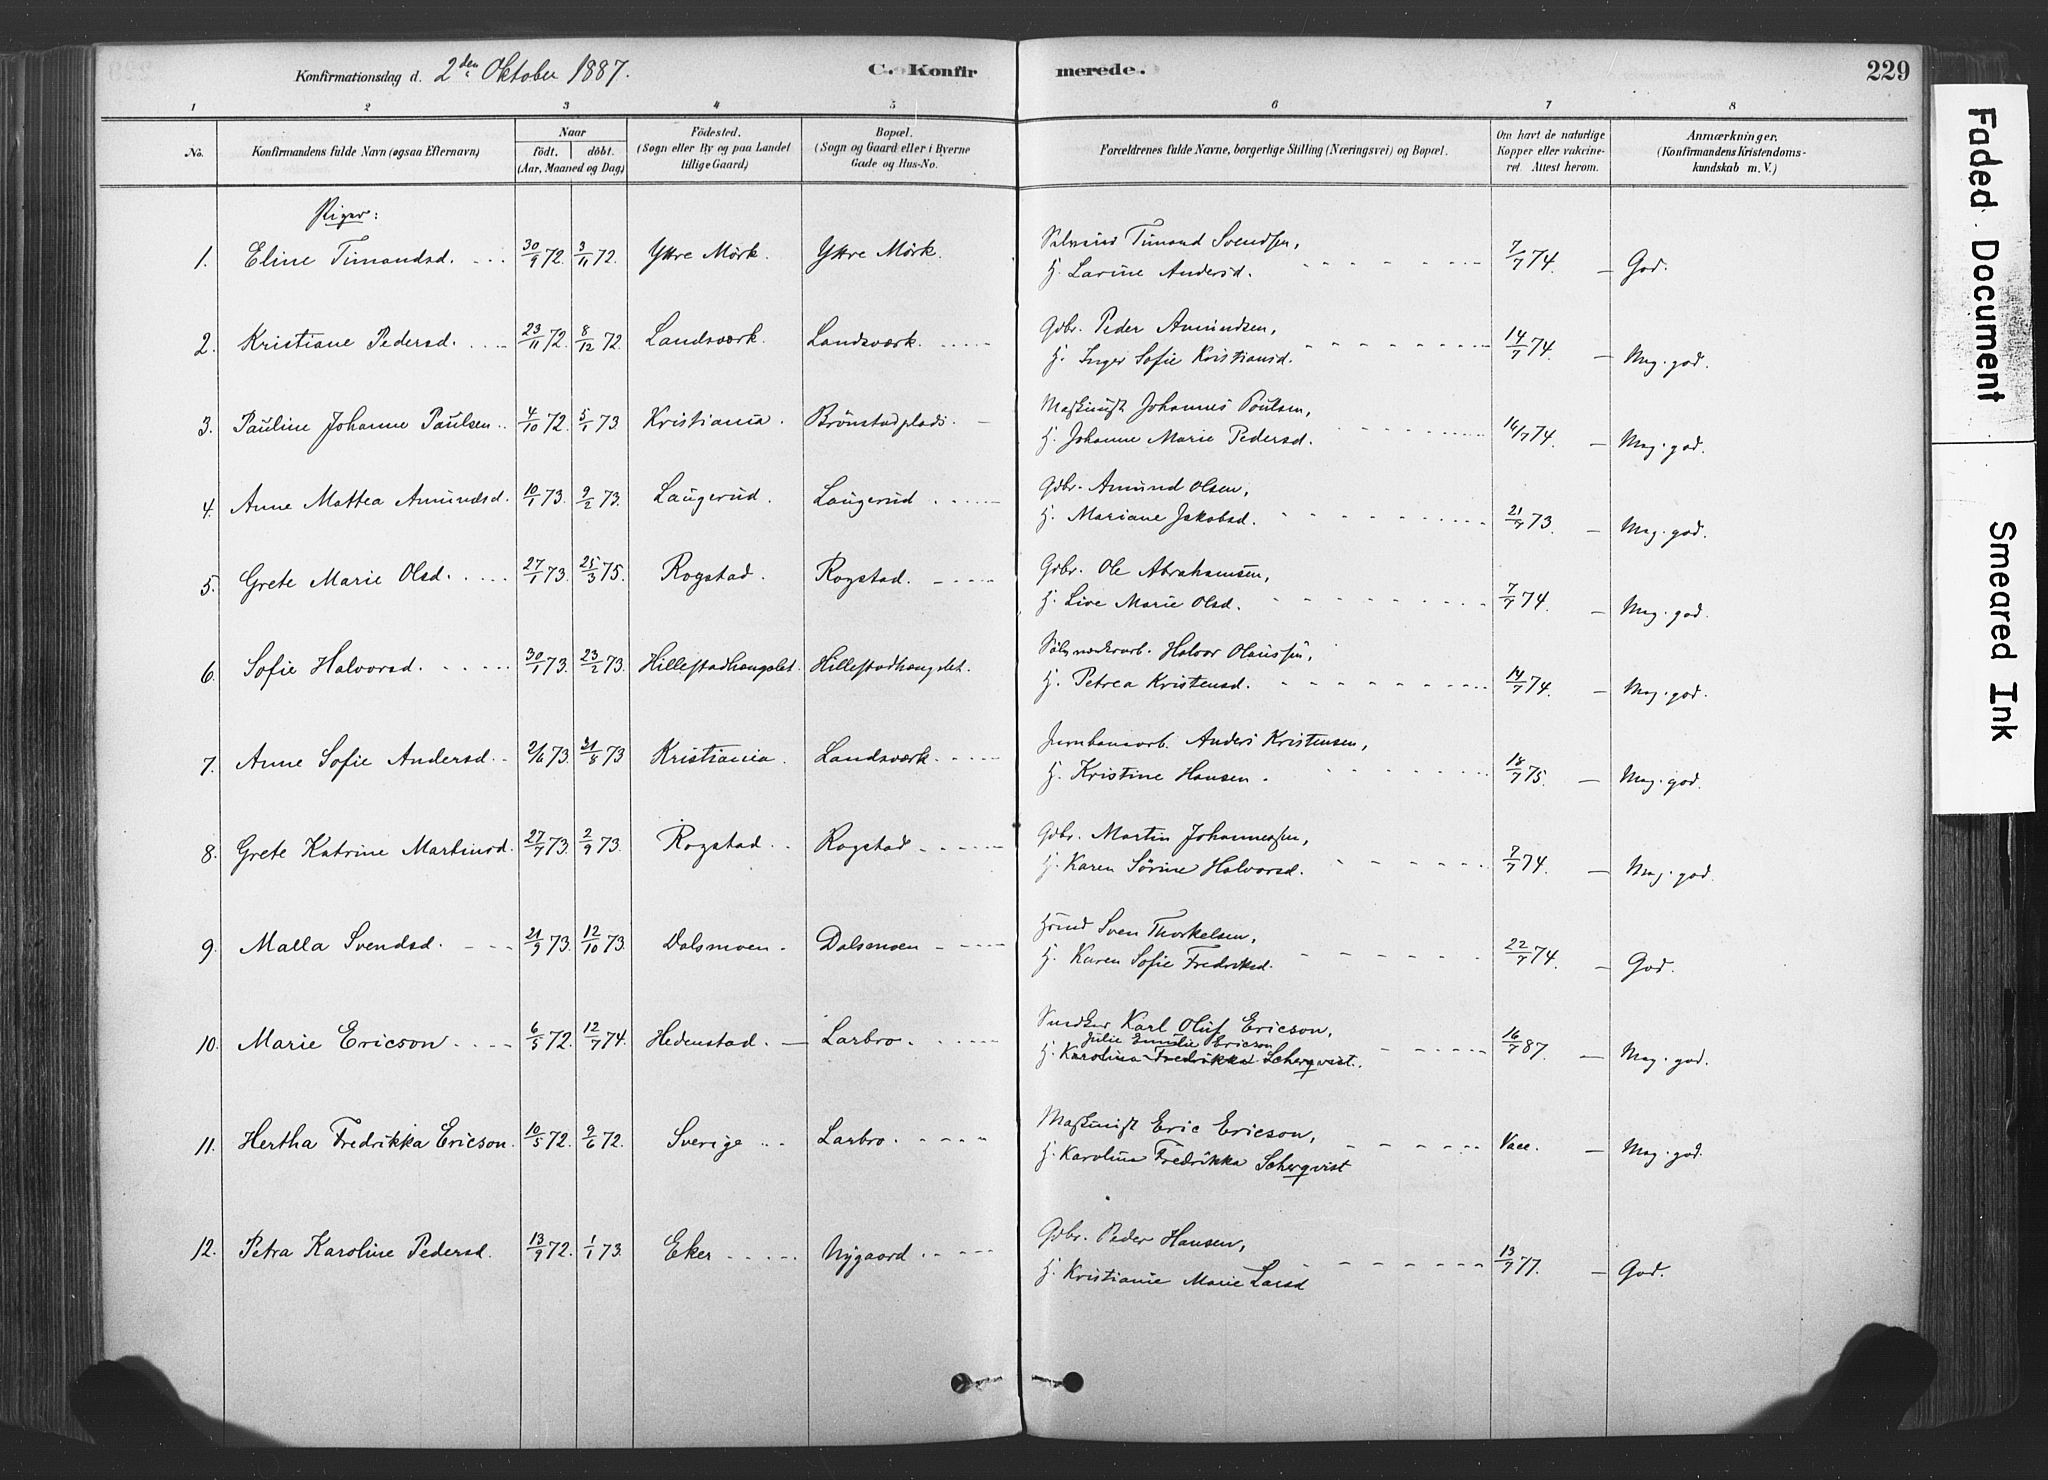 Konfirmationsdag d. 2den Oktober 1887. C. Konfirmerede. 229
1 2 3 4 5 6 7 8
No. Konfirmandens fulde Navn (ogsaa Efternavn) Naar födt. döbt. (Aar, Maaned og Dag) Födested. (Sogn eller By og paa Landet tillige Gaard) Bopæl. (Sogn og Gaard eller i Byerne Gade og Hus-No. Forældrenes fulde Navne, borgerlige Stilling (Næringsvei) og Bopæl. Om havt de naturlige Kopper eller vakcineret. Attest herom. Anmærkninger. (Konfirmandens Kristendomskundskab m. V.)
Piger:
1. Eline Timandsd. 30/9 72. 3/11 72. Yttre Mörk. Yttre Mörk. Timand Svendsen,
H. Larine Andersd. 7/7 74. — God.
2. Kristiane Pedersd. 23/11 72. 8/12 72. Landsværk. Landsværk. Gdbr. Peder Amundsen,
H. Inger Sofie Kristiansd. 14/7 74. — Meg. god.
3. Pauline Johanne Paulsen. 4/10 72. 5/1 73 Kristiania. Brönstadplads. Maskinist Johannes Poulsen,
H. Johanne Marie Pedersd. 16/7 74. — Meg. god.
4. Anne Mattea Amundsd. 10/1 73. 9/2 73. Laugerud. Laugerud. Gdbr. Amund Olsen,
H. Mariane Jakobsd. 21/7 73. — Meg. god.
5. Grete Marie Olsd. 27/1 73. 25/3 75. Rogstad. Rogstad. Gdbr. Ole Abrahamsen,
H. Live Marie Olsd. 7/7 74. — Meg. god.
6. Sofie Halvorsd. 30/1 73. 23/2 73. Hillestadhaugslet. Hillestadhaugslet. Halvor Olaussen,
H. Petrea Kristensd. 14/7 74. — Meg. god.
7. Anne Sofie Andersd. 2/6 73. 31/8 73 Kristiania. Landsværk. Jernbanearb. Anders Kristensen,
H. Kristine Hansen. 18/7 75. — Meg. god.
8. Grete Katrine Martinsd. 27/7 73. 2/9 73. Rogstad. Rogstad. Gdbr. Martin Johannessen,
H. Karen Sörine Halvorsd. 7/7 74. — Meg. god.
9. Malla Svendsd. 21/9 73. 12/10 73. Dalsmoen. Dalsmoen. Hsmd Sven Thorkelsen,
H. Karen Sofie Fredriksd. 22/7 74. — God.
10. Marie Ericson. 6/5 72. 12/7 74. Hedenstad. Larbro. Snedker Karl Oluf Ericson,
Julie Emilie Ericson
H. Karolina Fredrikka Scherqvist. 16/7 87. — Meg. god.
11. Hertha Fredrikka Ericson. 10/5 72. 9/6 72. Sverige. Larbro. Maskinist Eric Ericson,
H. Karolina Fredrikka Scherqvist Vacc. — Meg. god.
12. Petra Karoline Pedersd. 13/9 72. 1/1 73. Eker. Nygaard. Gdbr. Peder Hansen,
H. Kristiane Marie Larsd 13/7 77. — God.
Faded Document
Smeared Ink